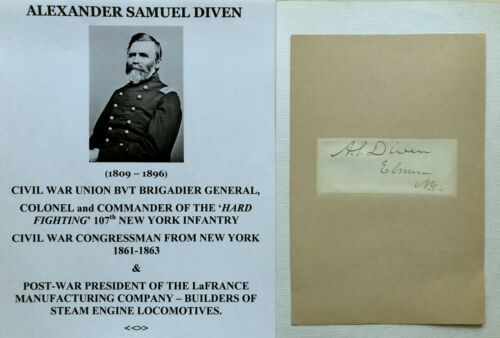 ALEXANDER SAMUEL DIVEN
(1809 – 1896)
CIVIL WAR UNION BVT BRIGADIER GENERAL,
COLONEL and COMMANDER OF THE ‘HARD
FIGHTING’ 107th NEW YORK INFANTRY
CIVIL WAR CONGRESSMAN FROM NEW YORK
1861-1863
&
POST-WAR PRESIDENT OF THE LaFRANCE
MANUFACTURING COMPANY – BUILDERS OF
STEAM ENGINE LOCOMOTIVES.
<<>>
A.S. Diven
Elmira
NY.